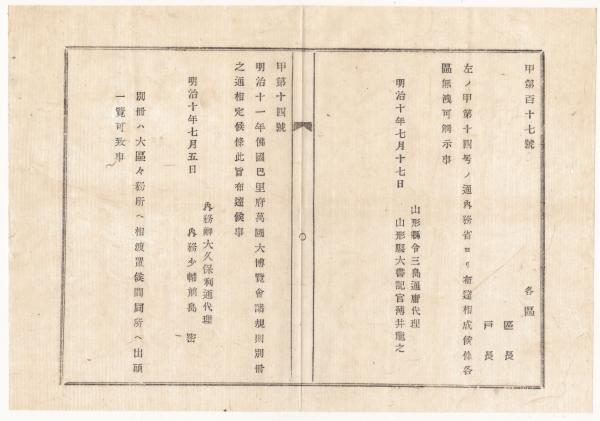 甲第百十七號
各區
區長
戸長
左ノ甲第十四号ノ通內務省ヨリ布達相成候條各
區無洩可觸示事
明治十年七月十七日
山形縣令三島通庸代理
山形縣大書記官薄井龍之
甲第十四號
明治十一年佛國巴里府萬國大博覽會諸規則別冊
之通相定候條此旨布達候事
明治十年七月五日
內務卿大久保利通代理
內務少輔前島 密
別冊ハ大區々務所ヘ相渡置候間同所ヘ出頭
一覽可致事